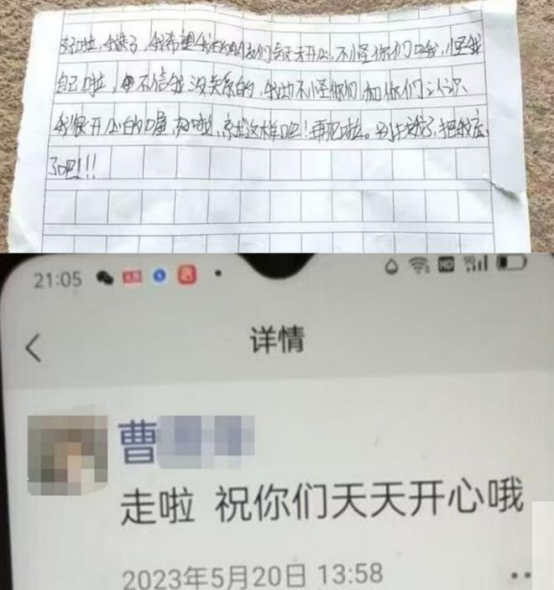 好啦，我走了，我希望我的朋友们每天开心，不怪你们哦，怪我
自己啦，不信我没关系的，我也不怪你们，和你们认识
我很开心的喔，好啦，就这样吧！再见啦。别找我了，把我忘
了吧！！！
21:05
详情
曹
走啦 祝你们天天开心哦
2023年5月20日 13:58